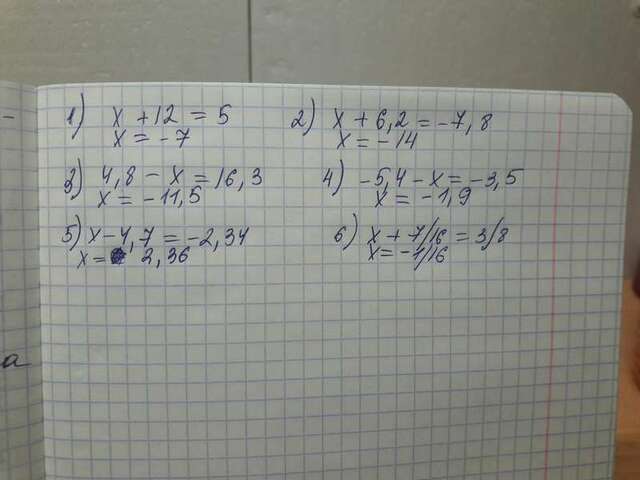 1) x + 12 = 5 2) x + 6,2 = -7,8
x = -7 x = -14
3) 4,8 - x = 16,3 4) -5,4 - x = -3,5
x = -11,5 x = -1,9
5) x - 4,7 = -2,34 6) x + 7/16 = 3/8
x = 2,36 x = -1/16
а